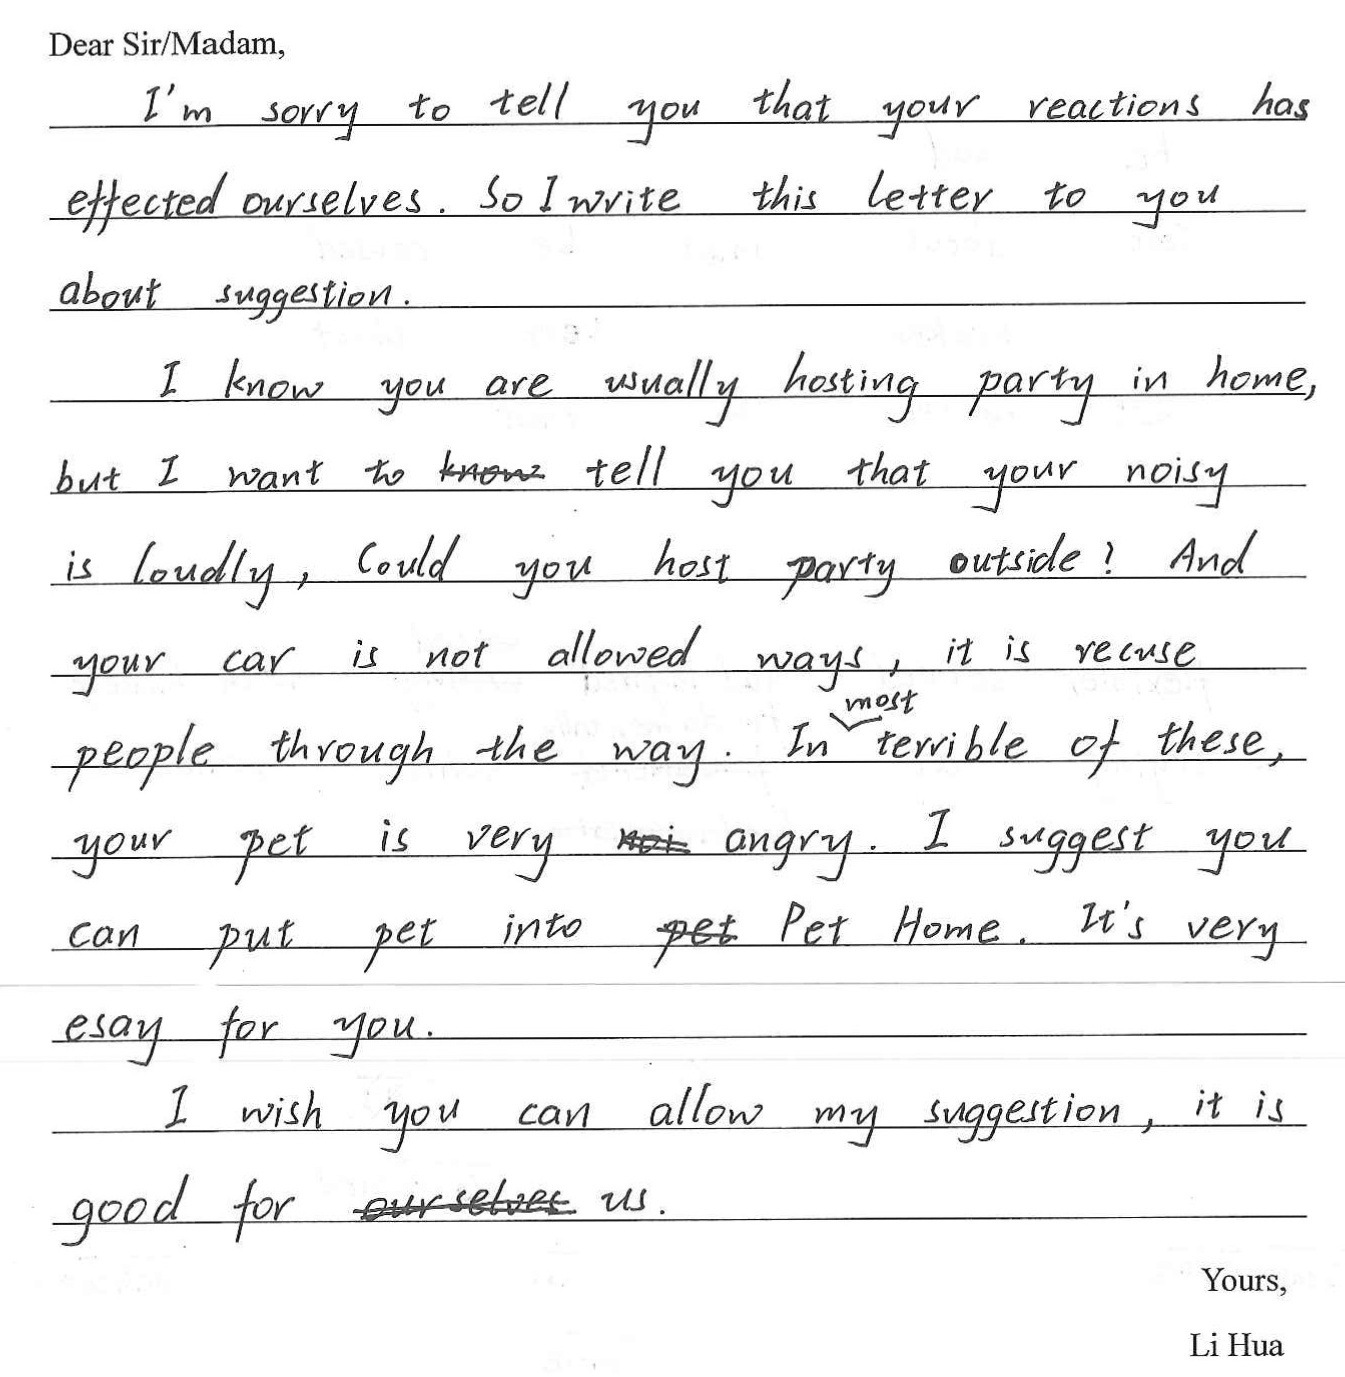 Dear Sir/Madam,
I'm sorry to tell you that your reactions has
effected ourselves. So I write this letter to you
about suggestion.
I know you are usually hosting party in home,
but I want to know tell you that your noisy
is loudly, Could you host party outside? And
your car is not allowed ways, it is recuse
most
people through the way. In terrible of these,
your pet is very noi angry. I suggest you
can put pet into pet Pet Home. It's very
esay for you.
I wish you can allow my suggestion, it is
good for ourselves us.
Yours,
Li Hua